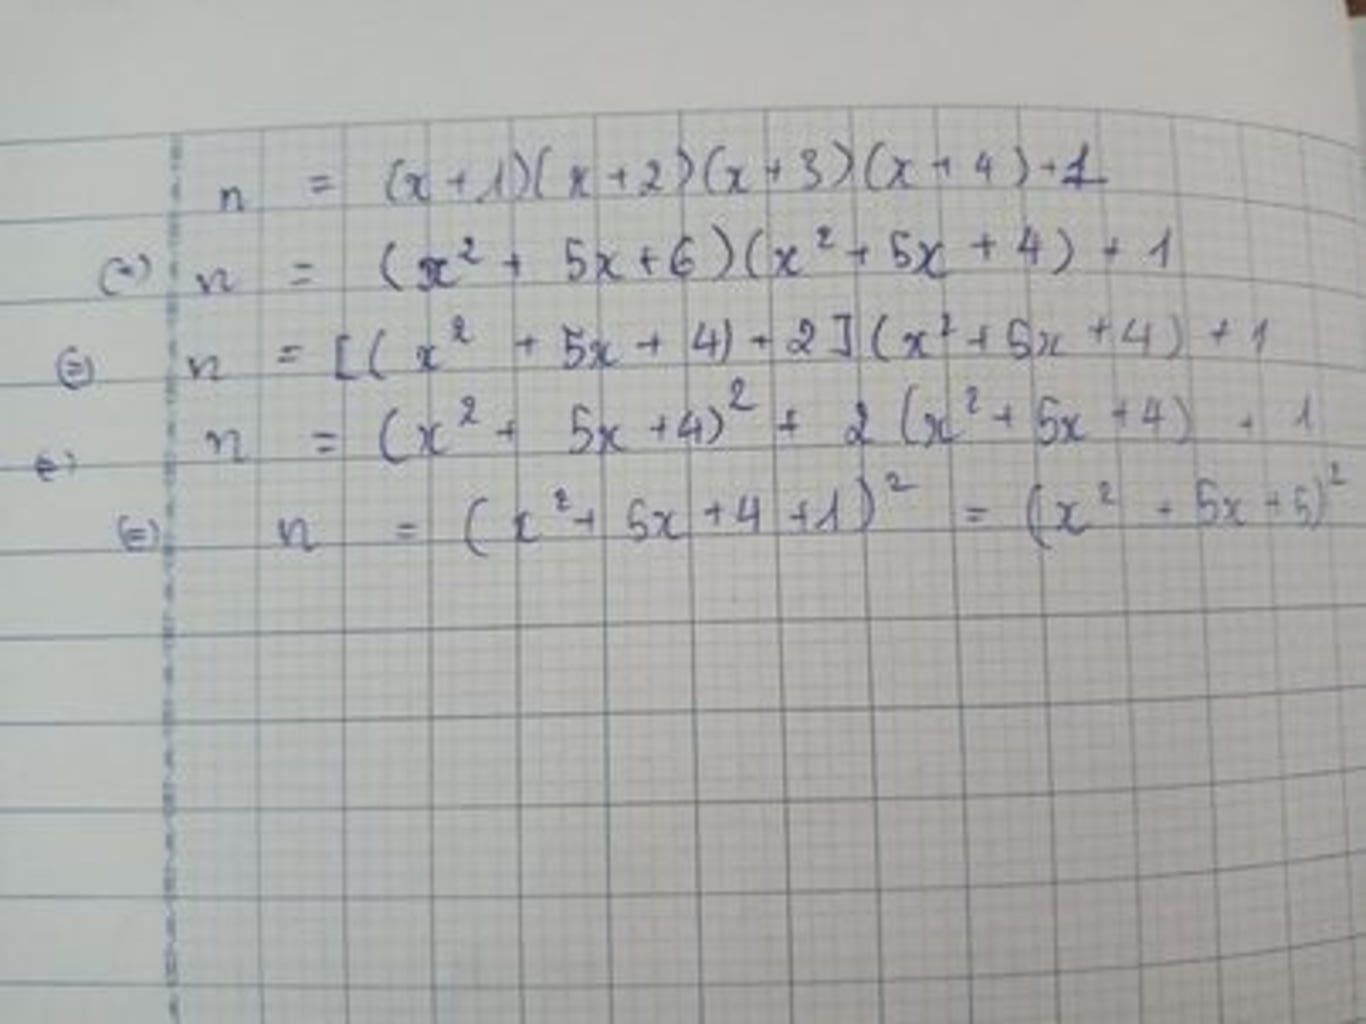 n = (x+1)(x+2)(x+3)(x+4)+1
(=) n = (x² + 5x+6)(x²+5x+4)+1
(=) n = [(x² + 5x+4)+2](x²+5x+4)+1
(=) n = (x²+ 5x+4)² + 2(x²+5x+4) + 1
(=) n = (x²+ 5x+4+1)² = (x² + 5x+5)²